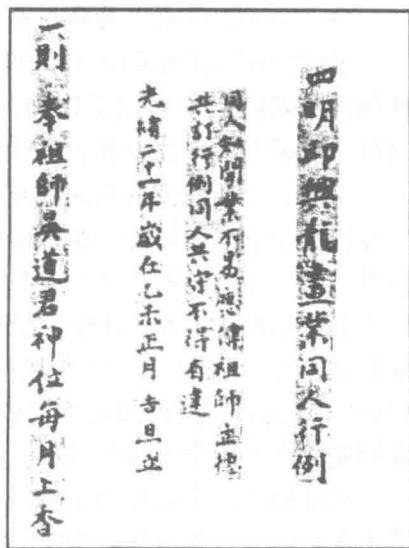 四明邱興龍畫業同人行例
同人知開業不易祖師立德
共訂行例同人共守不得有違
光緒二十一年歲在乙未正月吉旦立
一則 奉祖師吳道君神位每月上香